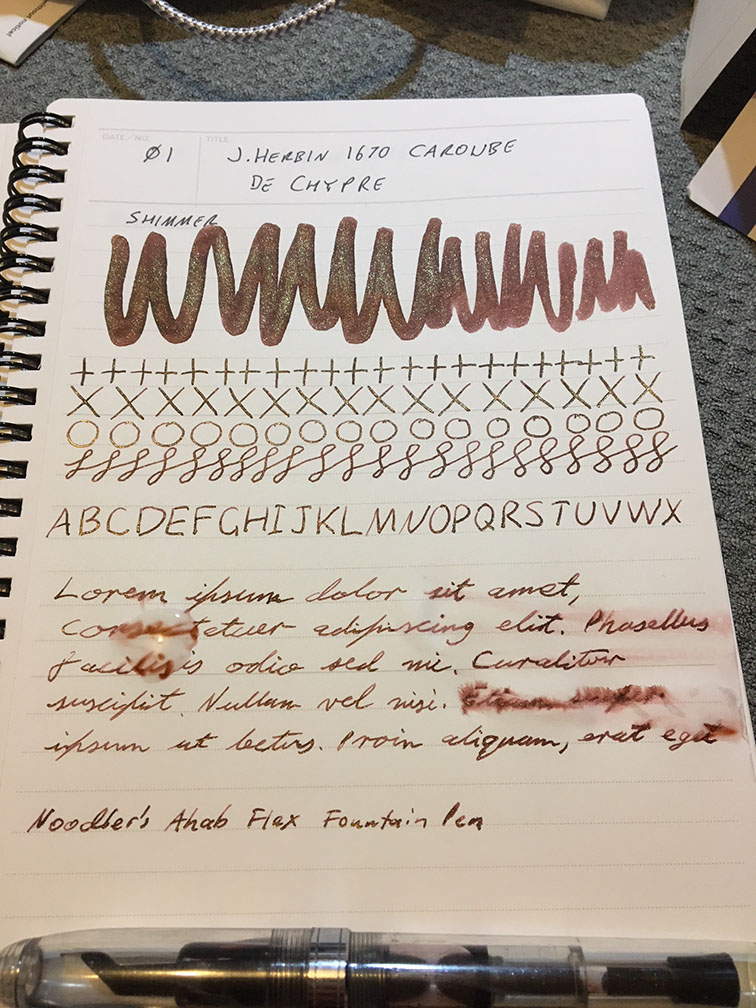 without notice!
DATE/NO.
TITLE
Ø1
J. HERBIN 1670 CAROUBE
DE CHYPRE
SHIMMER
+ + + + + + + + + + + + + + + + + + + +
X X X X X X X X X X X X X X X X
O O O O O O O O O O O O O O O O
ABCDEFGHIJKLMNOPQRSTUVWX
Lorem ipsum dolor sit amet,
consectetuer adipiscing elit. Phasellus
facilisis odio sed mi. Curabitur
suscipit. Nullam vel nisi. Etiam semper
ipsum ut lectus. Proin aliquam, erat eget
Noodler's Ahab Flex Fountain Pen